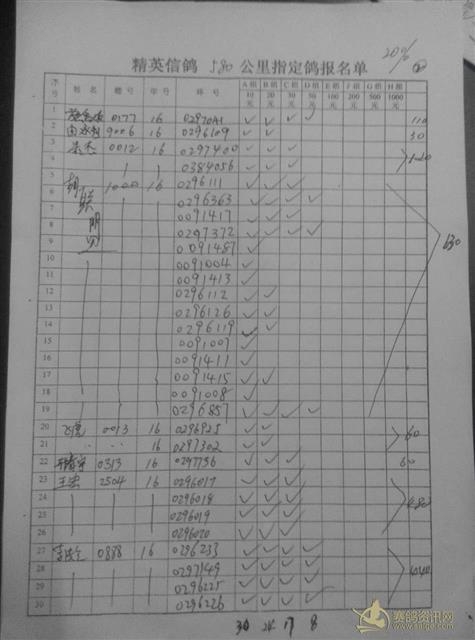 20% ②
精英信鸽 580 公里指定鸽报名单
序号 姓名 棚号 年号 环号 A组 10元 B组 20元 C组 30元 D组 50元 E组 100元 F组 200元 G组 500元 H组 1000元
1 0177 16 0297041 ✓ ✓ ✓ ✓ 110
2 9006 16 0296109 ✓ ✓ 30
3 0012 16 0297400 ✓ ✓ ✓
4 0384056 ✓ ✓ ✓
5 胡 1000 16 0296111 ✓ ✓ ✓
6 联 0296363 ✓ ✓ ✓ ✓
7 明 0091417 ✓ ✓ ✓
8 0297372 ✓ ✓ ✓ ✓
9 0091487 ✓
10 0091004 ✓
11 0091413 ✓
12 0296112 ✓ ✓
13 0296126 ✓ ✓
14 0296119 ✓ ✓
15 0091007 ✓
16 0091411 ✓
17 0091415 ✓ ✓
18 0091008 ✓
19 0296857 ✓ ✓ ✓ ✓
630
20 飞虎 0013 16 0296925 ✓ ✓
21 16 0297302 ✓ ✓
60
22 0313 16 0297756 ✓ ✓ ✓ 60
23 王宏 2504 16 0296017 ✓ ✓ ✓
24 0296018 ✓ ✓ ✓
25 0296019 ✓ ✓ ✓
26 0296020 ✓ ✓ ✓
27 0888 16 0296233 ✓ ✓ ✓ ✓
28 0297149 ✓ ✓ ✓ ✓
29 0296225 ✓ ✓ ✓ ✓
30 0296226 ✓ ✓ ✓ ✓
30 24 17 8
赛鸽资讯网